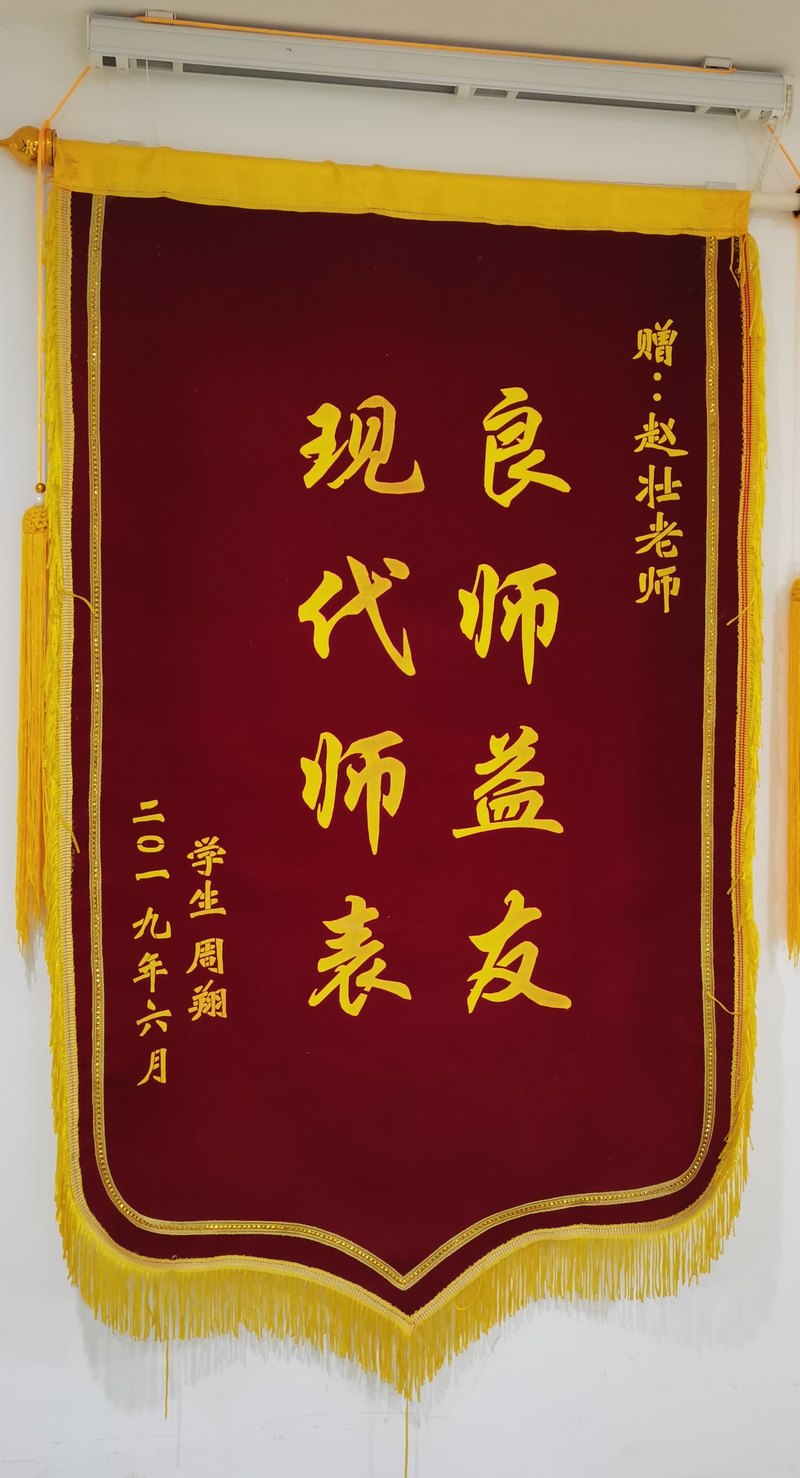 赠：赵壮老师
良师益友
现代师表
学生周翔
二〇一九年六月